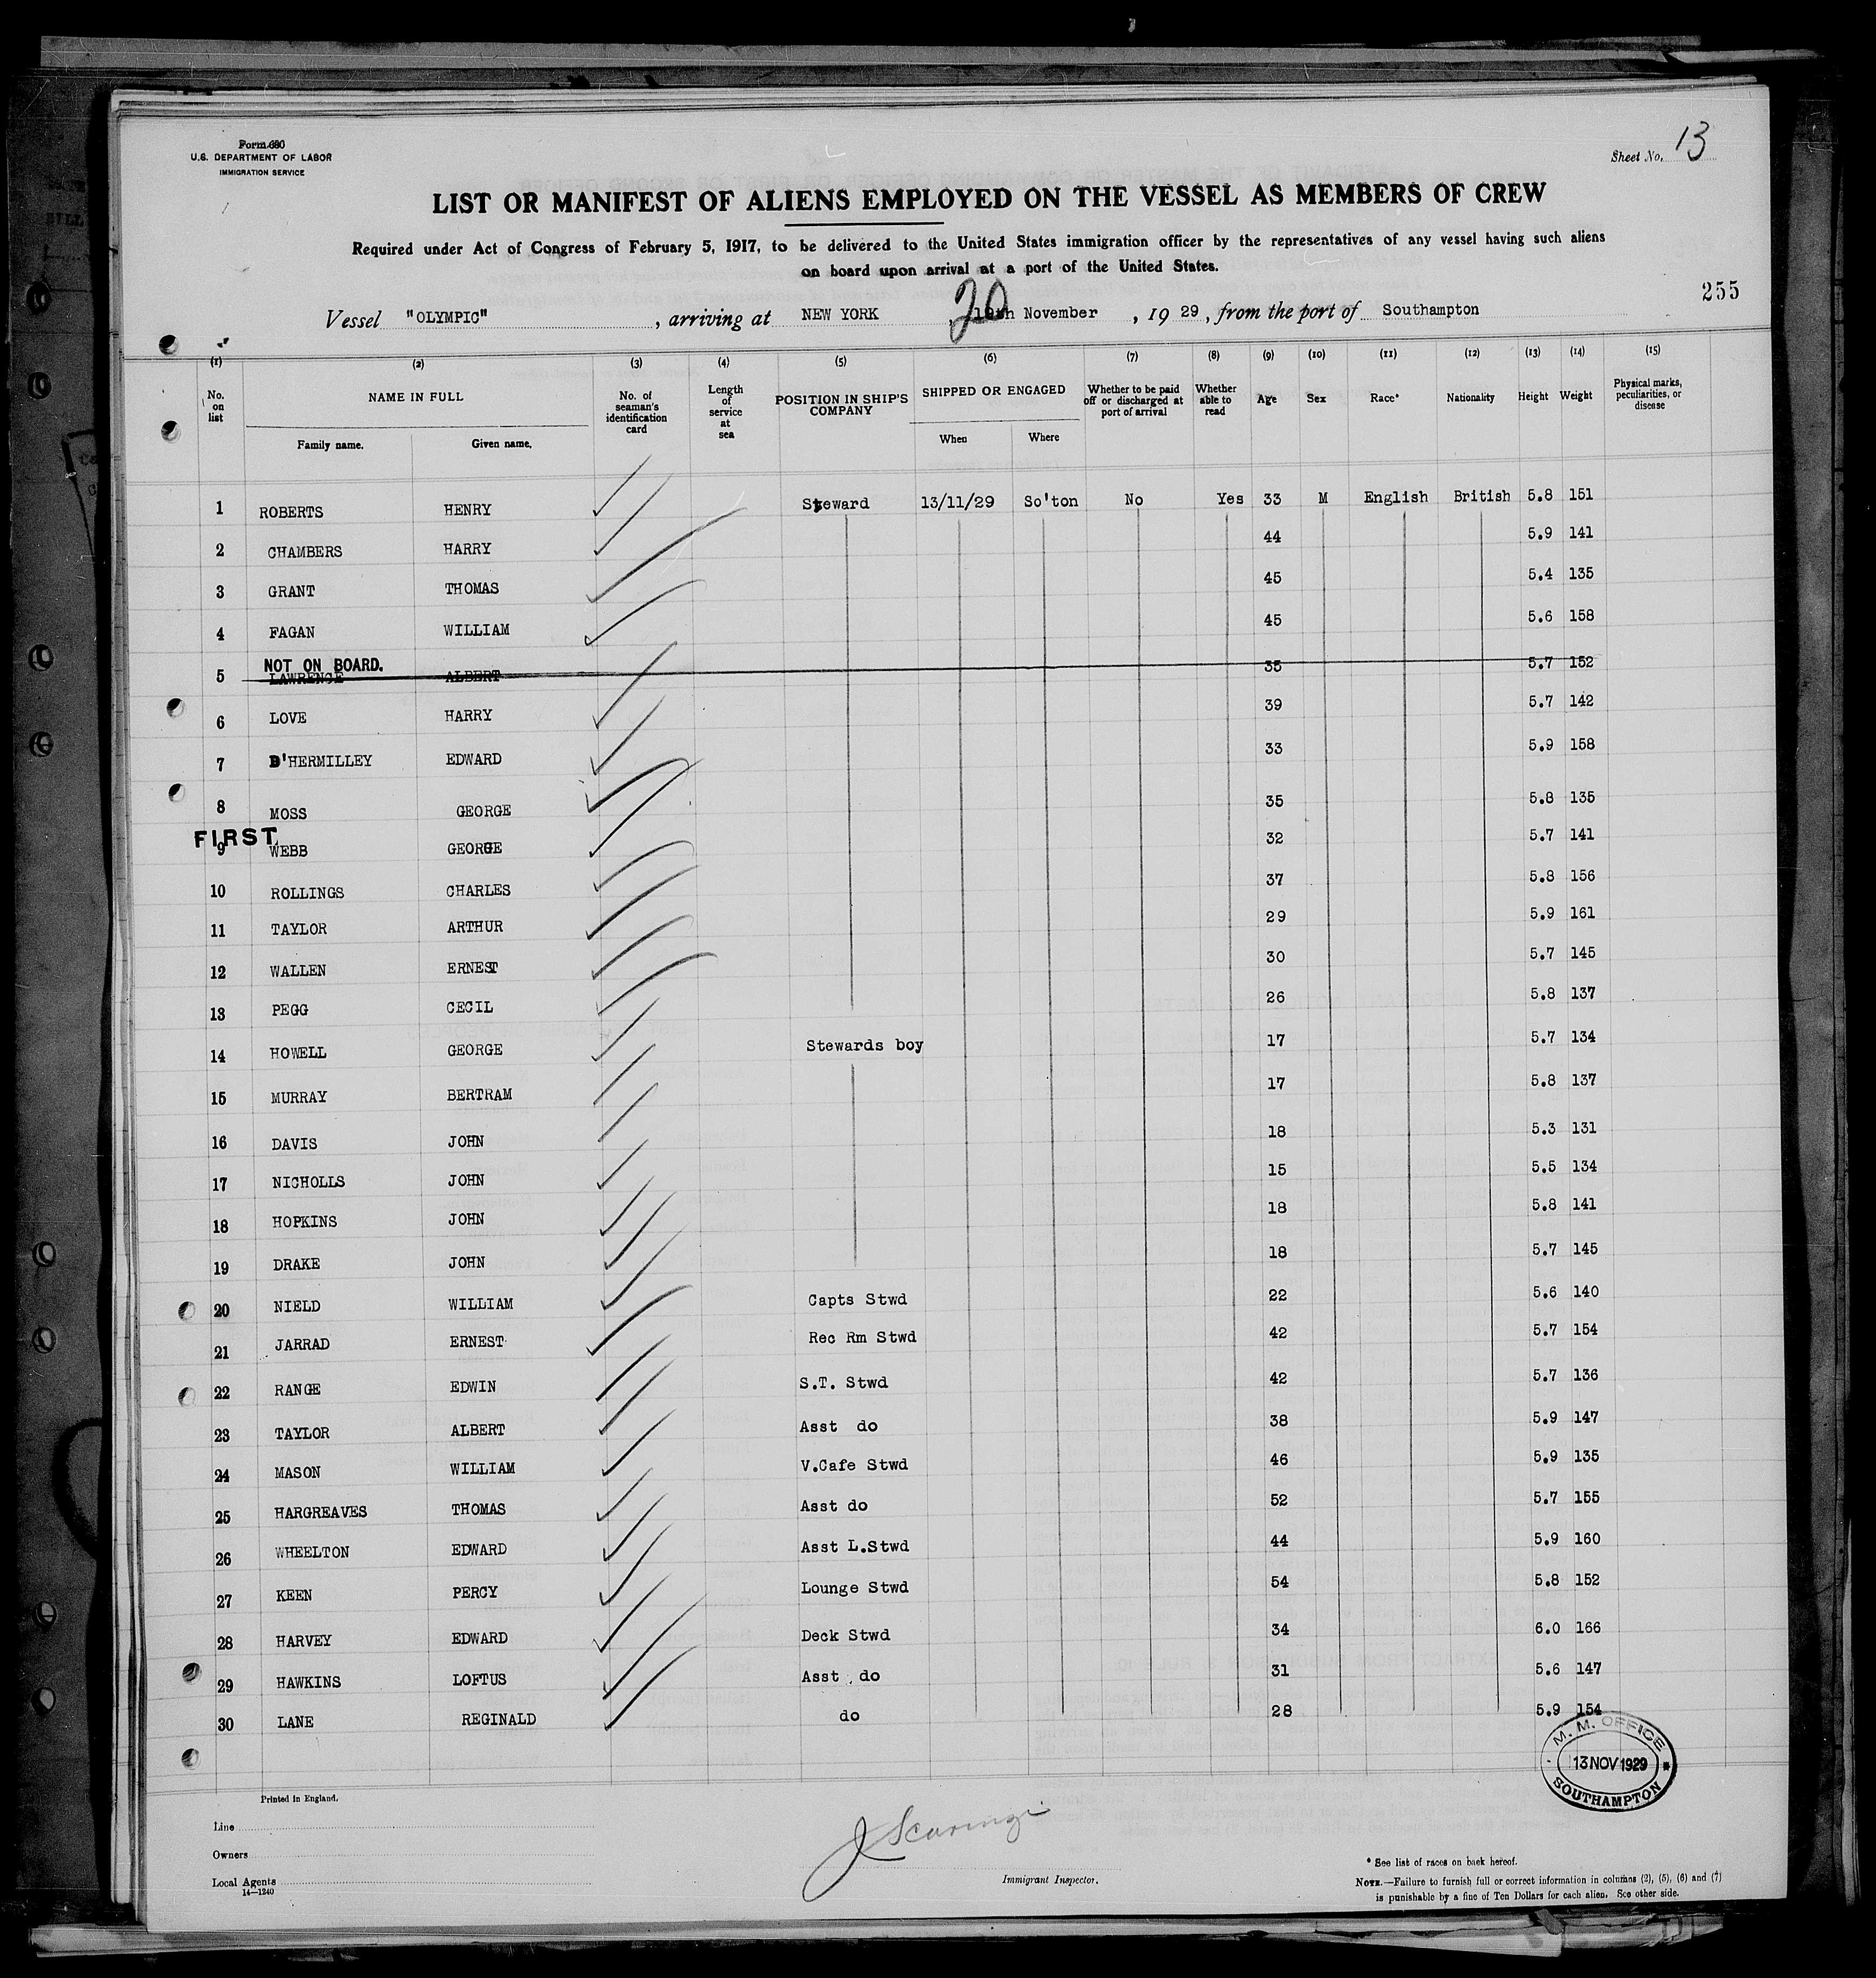 Form 680
U.S. DEPARTMENT OF LABOR
IMMIGRATION SERVICE
Sheet No. 13
LIST OR MANIFEST OF ALIENS EMPLOYED ON THE VESSEL AS MEMBERS OF CREW
Required under Act of Congress of February 5, 1917, to be delivered to the United States immigration officer by the representatives of any vessel having such aliens
on board upon arrival at a port of the United States.
255
Vessel "OLYMPIC", arriving at NEW YORK, 20 19th November, 1929, from the port of Southampton
(1) (2) (3) (4) (5) (6) (7) (8) (9) (10) (11) (12) (13) (14) (15)
No. on list NAME IN FULL Family name. Given name. No. of seaman's identification card Length of service at sea POSITION IN SHIP'S COMPANY SHIPPED OR ENGAGED When Where Whether to be paid off or discharged at port of arrival Whether able to read Age Sex Race* Nationality Height Weight Physical marks, peculiarities, or disease
1 ROBERTS HENRY Steward 13/11/29 So'ton No Yes 33 M English British 5.8 151
2 CHAMBERS HARRY 44 5.9 141
3 GRANT THOMAS 45 5.4 135
4 FAGAN WILLIAM 45 5.6 158
NOT ON BOARD.
5 LAWRENCE ALBERT 35 5.7 152
6 LOVE HARRY 39 5.7 142
7 D'HERMILLEY EDWARD 33 5.9 158
8 MOSS GEORGE 35 5.8 135
FIRST
9 WEBB GEORGE 32 5.7 141
10 ROLLINGS CHARLES 37 5.8 156
11 TAYLOR ARTHUR 29 5.9 161
12 WALLEN ERNEST 30 5.7 145
13 PEGG CECIL 26 5.8 137
14 HOWELL GEORGE Stewards boy 17 5.7 134
15 MURRAY BERTRAM 17 5.8 137
16 DAVIS JOHN 18 5.3 131
17 NICHOLLS JOHN 15 5.5 134
18 HOPKINS JOHN 18 5.8 141
19 DRAKE JOHN 18 5.7 145
20 NIELD WILLIAM Capts Stwd 22 5.6 140
21 JARRAD ERNEST Rec Rm Stwd 42 5.7 154
22 RANGE EDWIN S.T. Stwd 42 5.7 136
23 TAYLOR ALBERT Asst do 38 5.9 147
24 MASON WILLIAM V.Cafe Stwd 46 5.9 135
25 HARGREAVES THOMAS Asst do 52 5.7 155
26 WHEELTON EDWARD Asst L.Stwd 44 5.9 160
27 KEEN PERCY Lounge Stwd 54 5.8 152
28 HARVEY EDWARD Deck Stwd 34 6.0 166
29 HAWKINS LOFTUS Asst do 31 5.6 147
30 LANE REGINALD do 28 5.9 154
M. M. OFFICE
13 NOV 1929
SOUTHAMPTON
Printed in England.
Line
Owners
Local Agents
14—1240
Immigrant Inspector.
* See list of races on back hereof.
NOTE.—Failure to furnish full or correct information in columns (2), (5), (6) and (7)
is punishable by a fine of Ten Dollars for each alien. See other side.